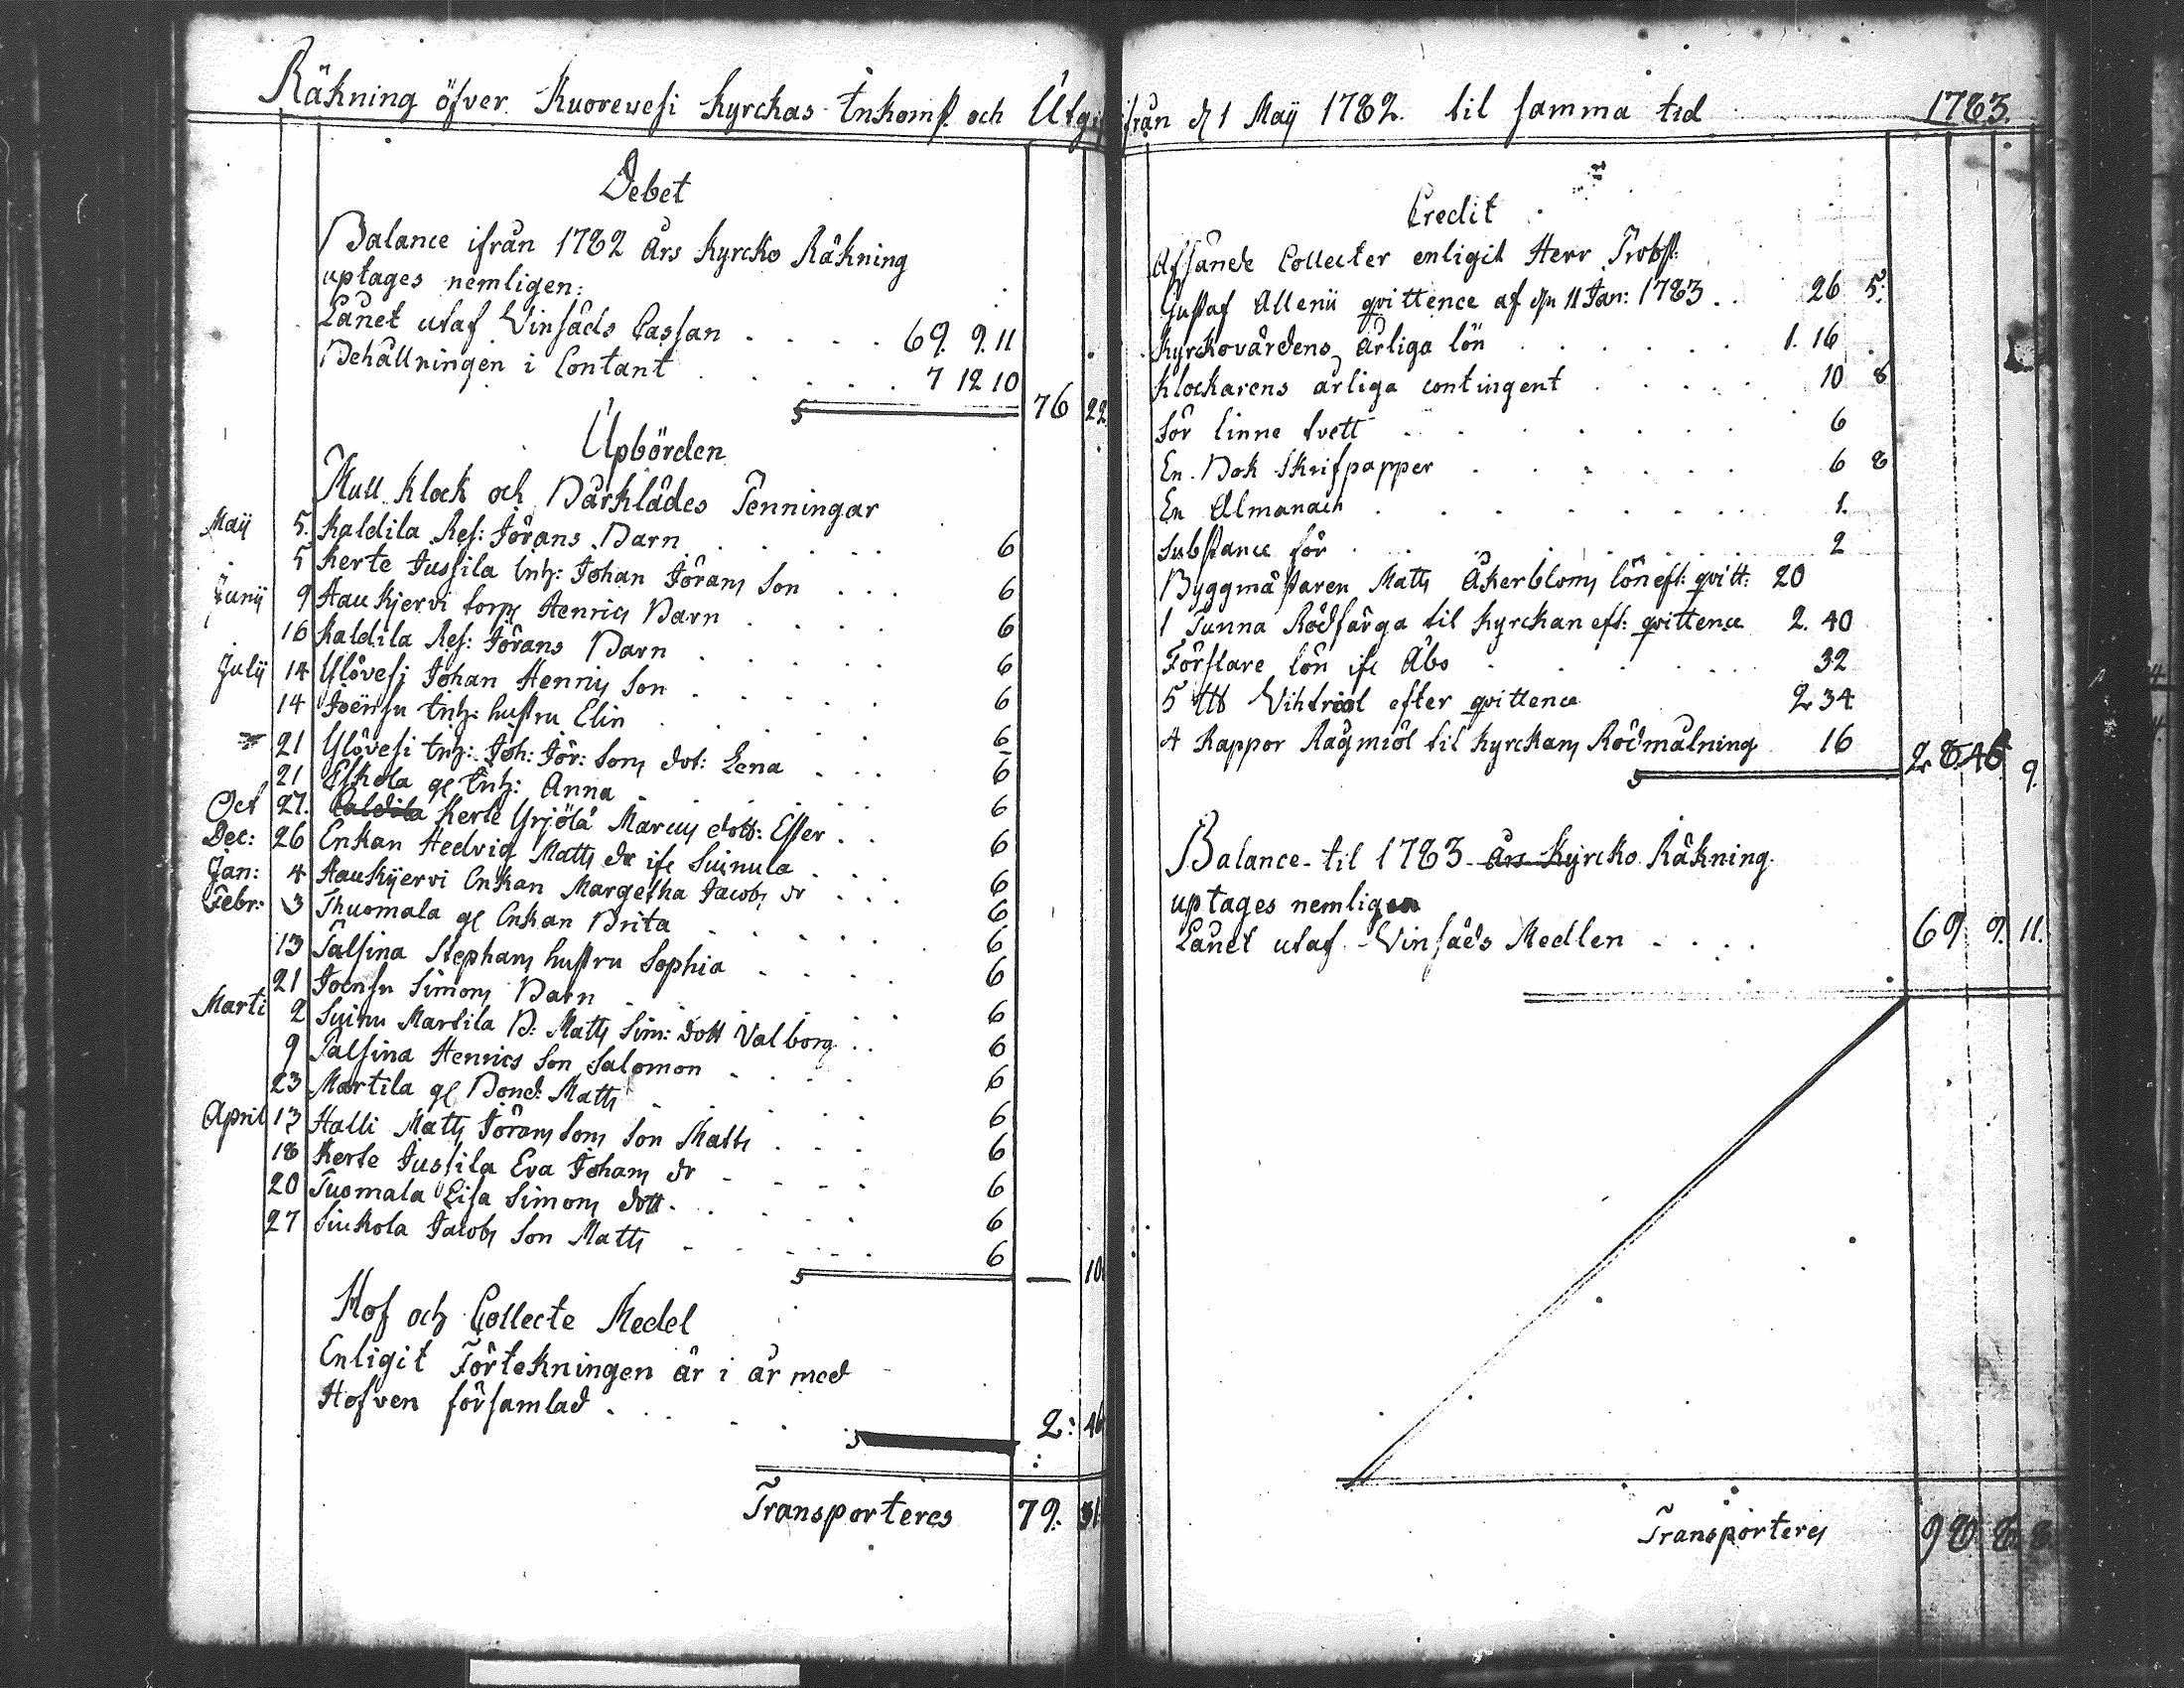 Räkning öfver Kuorewesi Kyrckas Inkomst och Utgi
Debet
Balance ifrån 1782 Års Kyrcko Räkning
uptages nemligen:
Lånet utaf Vinsåds Cassan . . . . 69. 9. 11
Behållningen i Contant . . . . . 7 12 10
76 22
Upbörden
Mull Klock och Bårklädes Penningar
Maij 5. Kaldila Ref: Jörans Barn . . . . 6
5 Kerte Jussila Inh: Johan Jörans Son . . . 6
Junij 9 Haukjervi torp Henrics Barn . . . . 6
16 Kaldila Ref: Jörans Barn . . . . . 6
Julij 14 Ylövesi Johan Henrics Son . . . . . 6
14 Joënsu Inh: hustru Elin . . . . 6
21 Ylövesi Inh: Joh: Jör: Sons dot: Lena . . . 6
21 Eskola gl Inh: Anna . . . . . 6
Oct 27. Kaldila Kerte Yrjölä Marcus dott: Ester . . 6
Dec: 26 Enkan Hedvig Matts dr ifr Suinula . . . 6
Jan: 4 Haukijervi Enkan Margetha Jacobs dr . . . 6
Febr: 3 Thuomala gl Enkan Brita . . . . . 6
13 Talsina Stephans hustru Sophia . . . . 6
21 Joensu Simons Barn . . . . . . 6
Marti 2 Suinu Martila B: Matts Sim: dott Valborg . . 6
9 Talsina Henrics Son Salomon . . . . 6
23 Martila gl Bond: Matts . . . . . 6
April 13 Halli Matts Jörans Sons Son Matts . . . 6
18 Kerte Jussila Eva Johans dr . . . . 6
20 Tuomala Lisa Simons dott . . . . 6
27 Siukola Jacobs Son Matts . . . . . 6
— 10
Hof och Collecte Medel
Enligit Förtekningen är i år med
Hofven församlad . . . . . 2: 46
Transporteres 79. 31
ifrån d 1 Maij 1782. til samma tid 1783.
Credit
Afsände Collecter enligit Herr Probst:
Gustaf Allenii qvittence af den 11 Jan: 1783 . . 26 5.
Kyrkovärdens årliga lön . . . . . . 1. 16
Klockarens årliga contingent . . . . . 10 8
för linne tvett . . . . . . . 6
En Bok Skrifpapper . . . . . . 6 8
En Almanach . . . . . . . 1.
Substance för . . . . . . . 2
Byggmästaren Matts Åkerbloms lön eft: qvitt: 20
1 Tunna Rödfärga til Kyrckan eft: qvittence 2. 40
Förslare lön ifr Åbo . . . . . 32
5 ℔ Vihtriol efter qvittence 2 34
4 Kappor Rågmiöl til Kyrckans Rödmålning 16
28. 46 9.
Balance til 1783 års Kyrcko Räkning
uptages nemligen
Lånet utaf Vinsåds Medlen . . . . 69. 9. 11.
Transporteres 98. 8. 8.